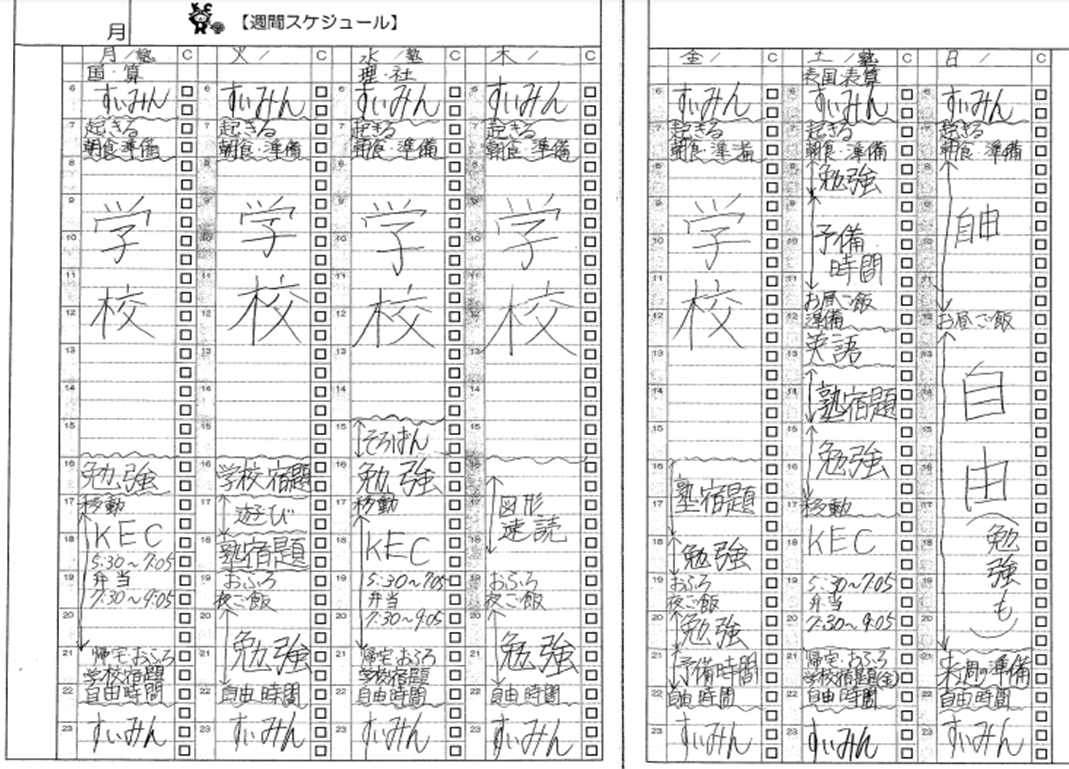 月
【週間スケジュール】
月/塾 C
国・算
6 すいみん
7 起きる
朝食・準備
8
9 学
10
11 校
12
13
14
15
16 勉強
17 移動
KEC
18 5:30~7:05
19 弁当
7:30~9:05
20
21 帰宅・おふろ
学校宿題
22 自由時間
23 すいみん
火/ C
6 すいみん
7 起きる
朝食・準備
8
9 学
10
11 校
12
13
14
15
16 学校宿題
17 遊び
18 塾宿題
19 おふろ
夜ご飯
20
21 勉強
22 自由時間
23 すいみん
水/塾 C
理・社
6 すいみん
7 起きる
朝食・準備
8
9 学
10
11 校
12
13
14
15 そろばん
16 勉強
17 移動
18 KEC
19 5:30~7:05
弁当
20 7:30~9:05
21 帰宅・おふろ
学校宿題
22 自由時間
23 すいみん
木/ C
6 すいみん
7 起きる
朝食・準備
8
9 学
10
11 校
12
13
14
15
16
17 図形
速読
18
19 おふろ
夜ご飯
20
21 勉強
22 自由時間
23 すいみん
金/ C
6 すいみん
7 起きる
朝食・準備
8
9 学
10
11 校
12
13
14
15
16
17 塾宿題
18 勉強
19 おふろ
夜ご飯
20 勉強
21 予備時間
22 自由時間
23 すいみん
土/塾 C
表国・表算
6 すいみん
7 起きる
朝食・準備
8 勉強
9
10 予備
時間
11
お昼ご飯
12 準備
13 英語
14 塾宿題
15 勉強
16
17 移動
18 KEC
19 5:30~7:05
弁当
20 7:30~9:05
21 帰宅・おふろ
学校宿題(金)
22 自由時間
23 すいみん
日/ C
6 すいみん
7 起きる
朝食・準備
8
9 自由
10
11
12 お昼ご飯
13
14 自
15
16 由
17
18 (勉強も)
19
20
21 来週の準備
22 自由時間
23 すいみん